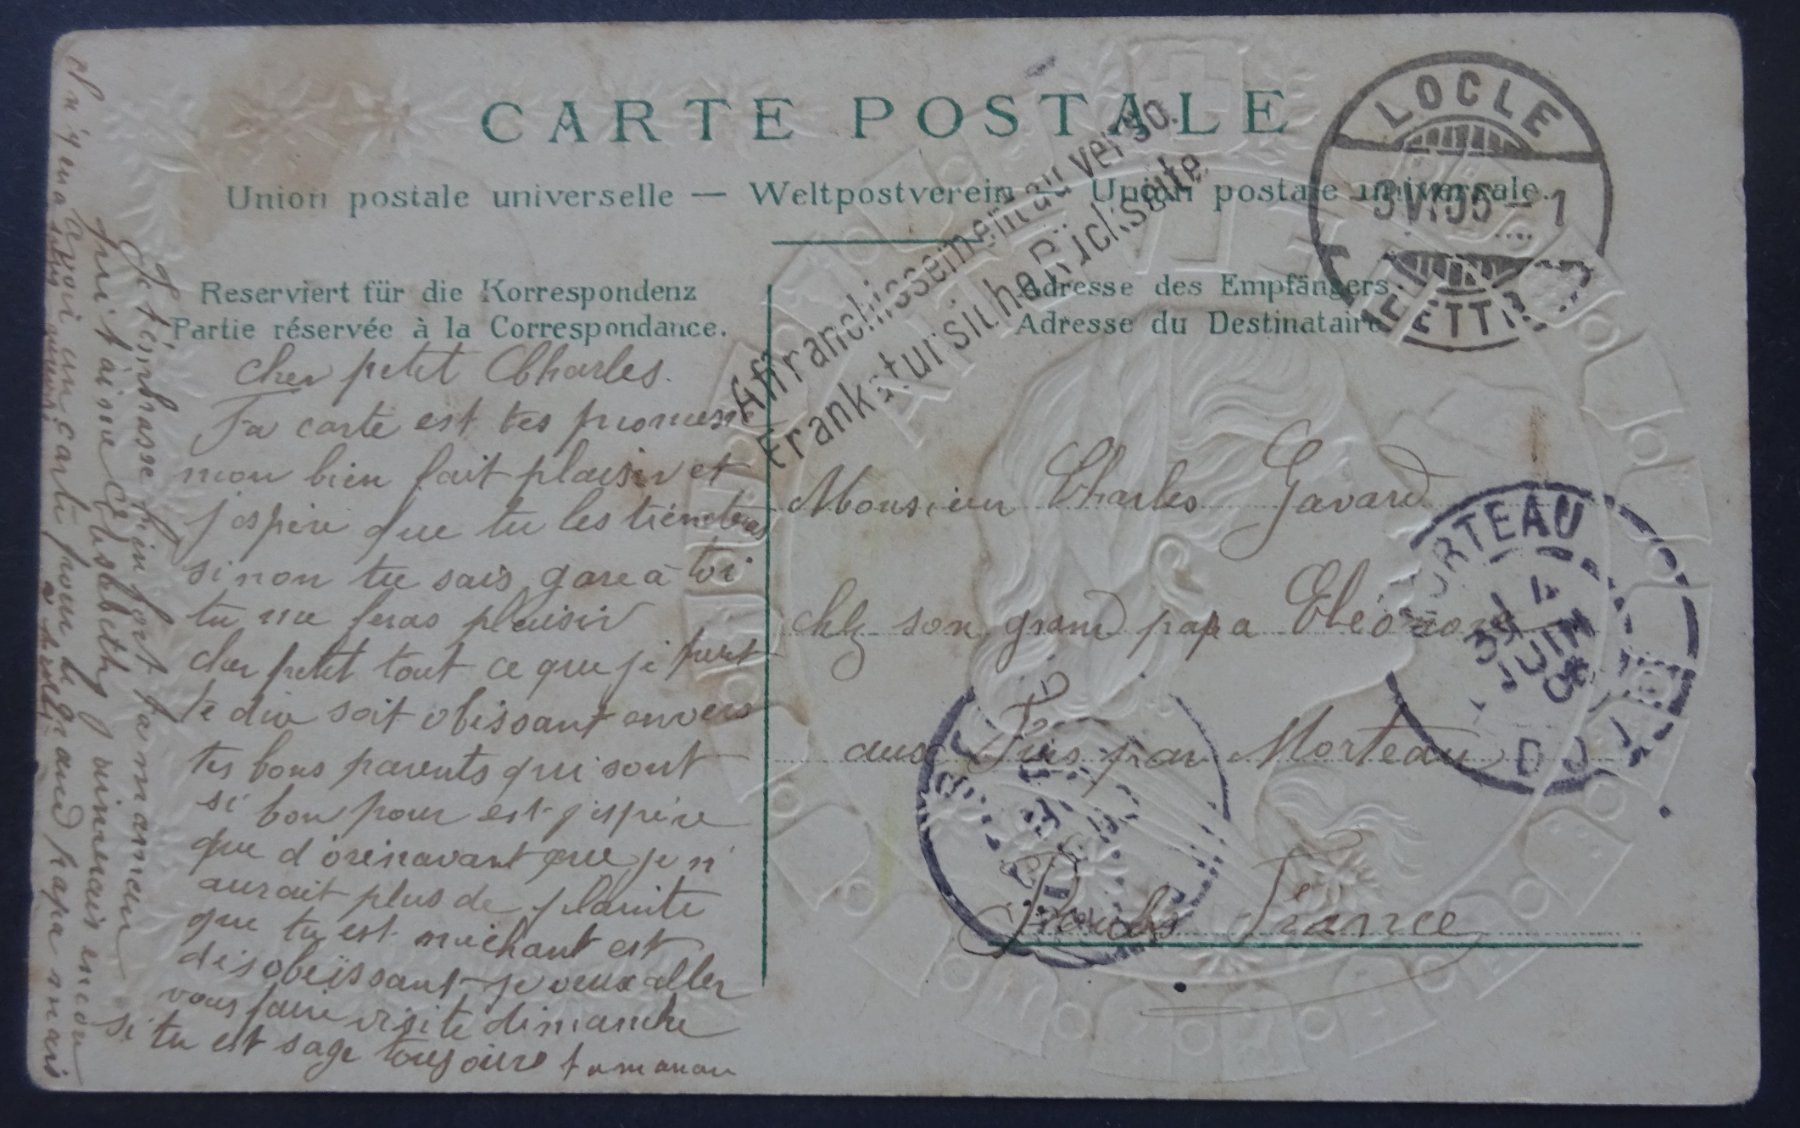 CARTE POSTALE
Union postale universelle — Weltpostverein — Union postale universale.
Affranchissement au verso.
Frankatur siehe Rückseite
LOCLE
-3 VI 05 - 1
LETTR
Reserviert für die Korrespondenz
Partie réservée à la Correspondance.
Adresse des Empfängers.
Adresse du Destinataire.
cher petit Charles.
Ta carte est tes promess
mon bien fait plaisir et
j'espère que tu les tiendras
sinon tu sais gare à toi
tu me feras plaisir
cher petit tout ce que je
te dire soit obissant envers
tes bons parents qui sont
si bon pour est j'espère
que d'orénavant que je n'
aurait plus de plainte
que tu est méchant est
désobeïssant je veux aller
vous faire visite dimanche
si tu est sage toujours ta maman
Je t'embrasse bien fort ta maman
qui t'aime Elisabeth j'aimerais encor
avoir un carte pour le grand papa mais
Monsieur Charles Gavard
chz son grand papa
aux Fins par Morteau
Doubs France
MORTEAU
4
JUIN
05
DOUBS